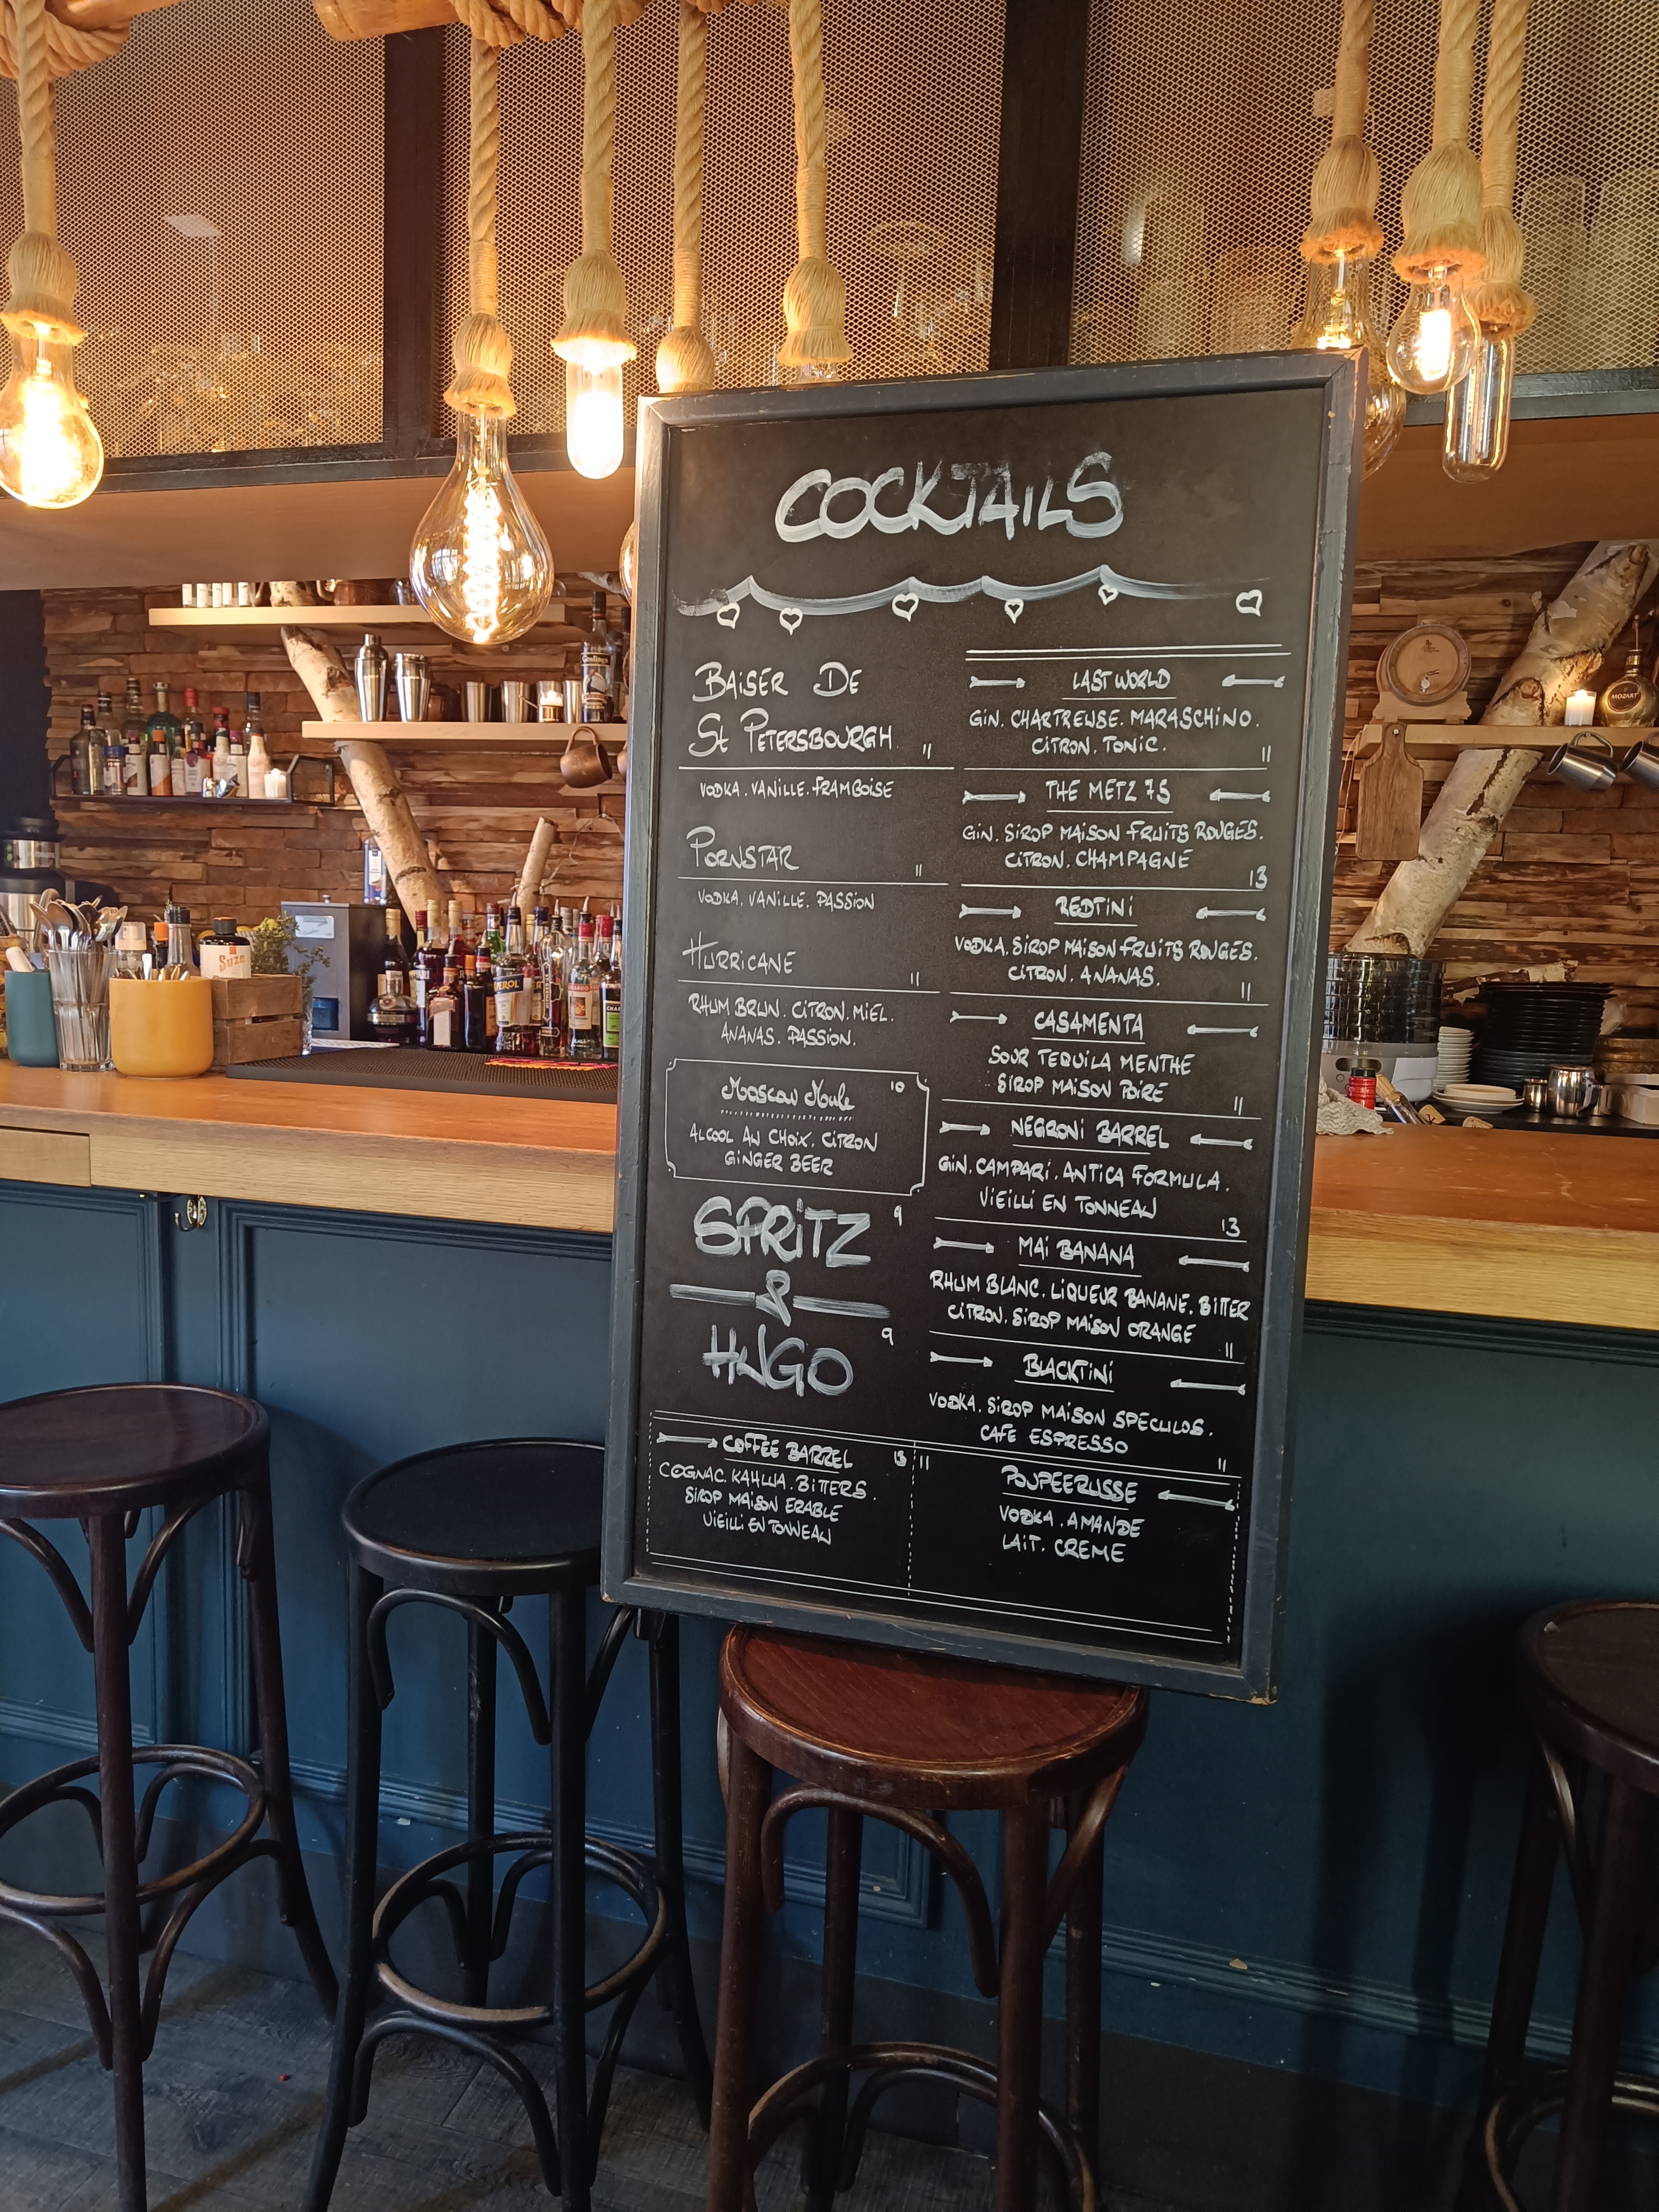 COCKTAILS
BAISER DE
St PETERSBOURGH 11
VODKA. VANILLE. FRAMBOISE
PORNSTAR 11
VODKA. VANILLE. PASSION
HURRICANE 11
RHUM BRUN. CITRON. MIEL.
ANANAS. PASSION.
Moscow Mule 10
ALCOOL AU CHOIX. CITRON
GINGER BEER
SPRITZ 9
&
HUGO 9
LAST WORLD
GIN. CHARTREUSE. MARASCHINO.
CITRON. TONIC. 11
THE METZ 75
GIN. SIROP MAISON FRUITS ROUGES.
CITRON. CHAMPAGNE 13
REDTINI
VODKA. SIROP MAISON FRUITS ROUGES.
CITRON. ANANAS. 11
CASAMENTA
SOUR TEQUILA MENTHE
SIROP MAISON POIRE 11
NEGRONI BARREL
GIN. CAMPARI. ANTICA FORMULA.
VIEILLI EN TONNEAU 13
MAI BANANA
RHUM BLANC. LIQUEUR BANANE. BITTER
CITRON. SIROP MAISON ORANGE 11
BLACKTINI
VODKA. SIROP MAISON SPECULOS.
CAFE ESPRESSO 11
COFFEE BARREL 13
COGNAC. KAHLUA. BITTERS.
SIROP MAISON ERABLE
VIEILLI EN TONNEAU
11 POUPEE RUSSE
VODKA. AMANDE
LAIT. CREME
Suze
MOZART